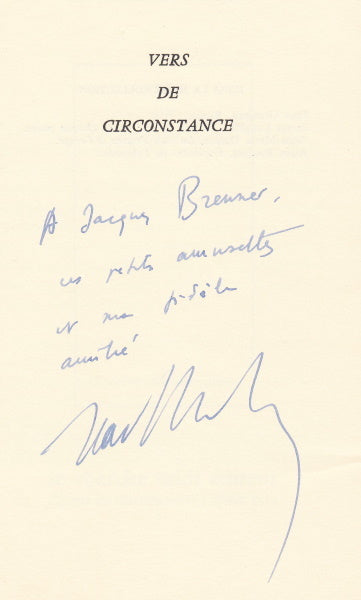 VERS
DE
CIRCONSTANCE
A Jacques Brenner,
ces petits amusettes
et ma fidèle
amitié